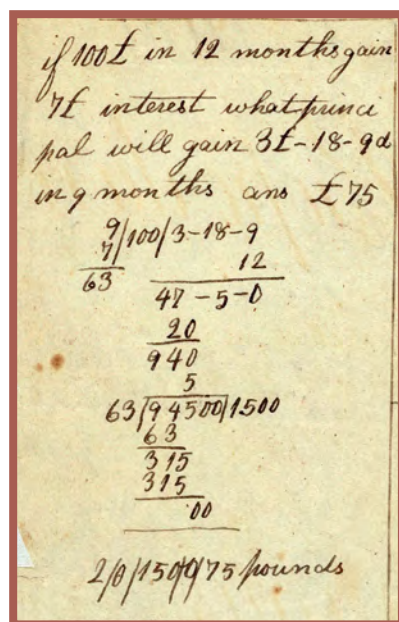 if 100£ in 12 months gain
7£ interest what princi
pal will gain 3£-18-9d
in 9 months ans £75
9/100/3-18-9
7
12
63
47-5-0
20
940
5
63/94500/1500
63
315
315
00
2/0/150/0/75 pounds